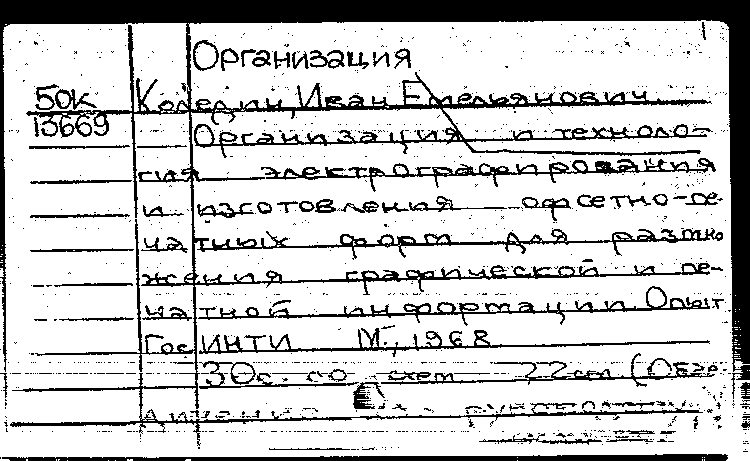 Организация
50к Коледин, Иван Емельянович.
13669 Организация и техноло-
гия электрографирования
и изготовления офсетно-пе-
чатных форм для размно
жения графической и пе-
чатной информации Опыт
ГосИНТИ М., 1968
30с. со схем 22см (Обзе